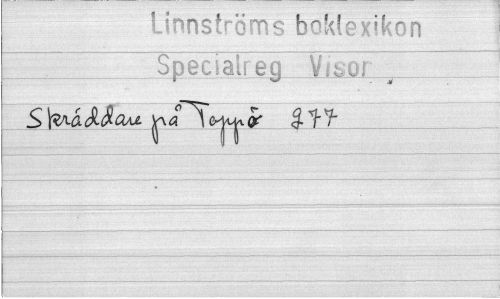 Linnströms boklexikon
Specialreg Visor
Skräddare på Toppö 977